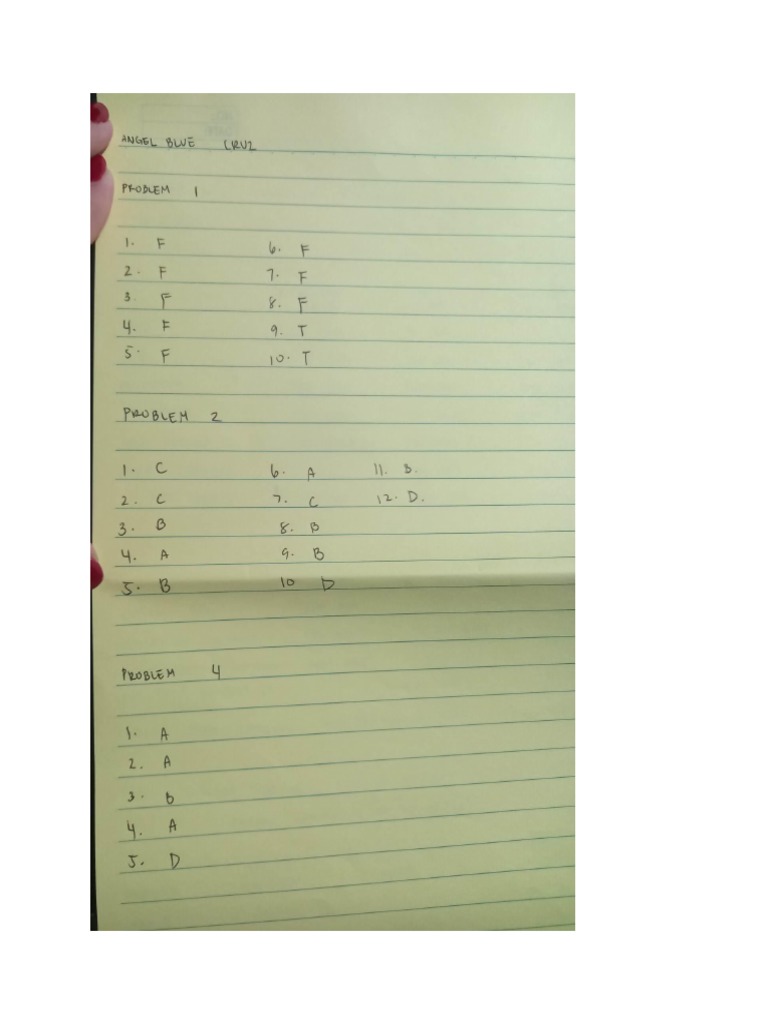 ANGEL BLUE CRUZ
PROBLEM 1
1. F 6. F
2. F 7. F
3. F 8. F
4. F 9. T
5. F 10. T
PROBLEM 2
1. C 6. A 11. B.
2. C 7. C 12. D.
3. B 8. B
4. A 9. B
5. B 10 D
PROBLEM 4
1. A
2. A
3. B
4. A
5. D